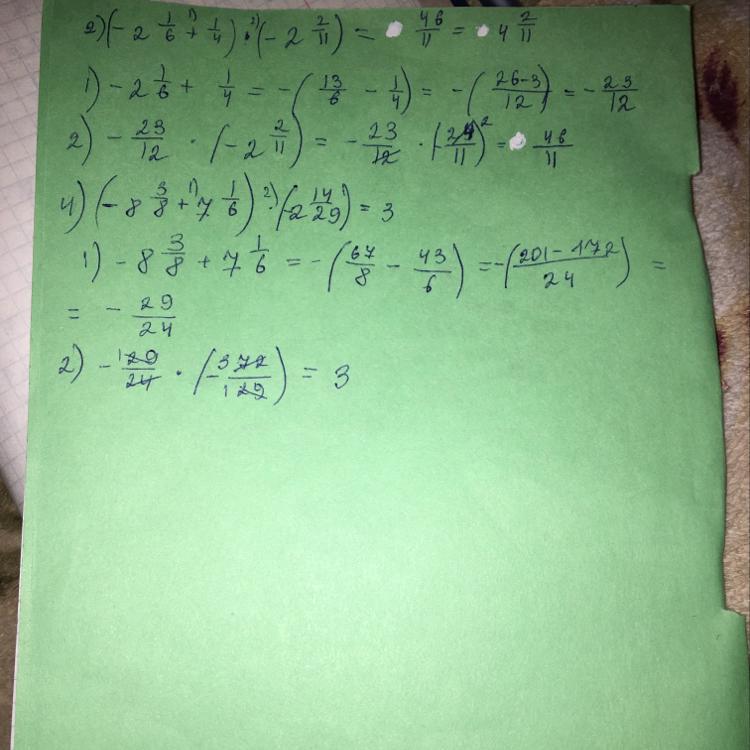 2) (-2 1/6 + 1/4) · (-2 2/11) = 46/11 = 4 2/11
1) -2 1/6 + 1/4 = -(13/6 - 1/4) = -(26-3/12) = -23/12
2) -23/12 · (-2 2/11) = -23/12 · (-24/11) 2 = 46/11
4) (-8 3/8 + 7 1/6) · (-2 14/29) = 3
1) -8 3/8 + 7 1/6 = -(67/8 - 43/6) = -(201-172/24) =
= -29/24
2) -1 29/24 · (-3 72/1 29) = 3